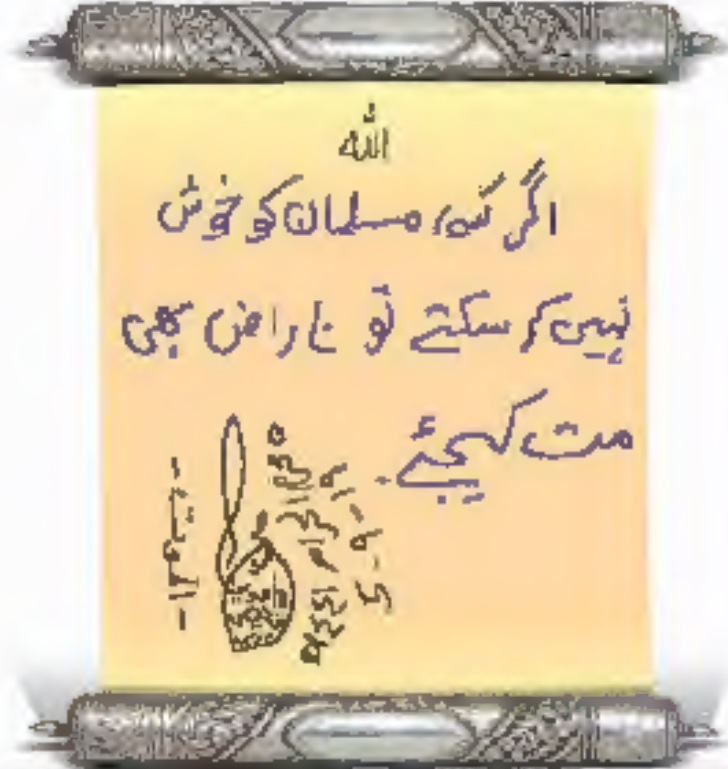 اللہ
اگر کسی مسلمان کو خوش
نہیں کر سکتے تو ناراض بھی
مت کیجئے۔